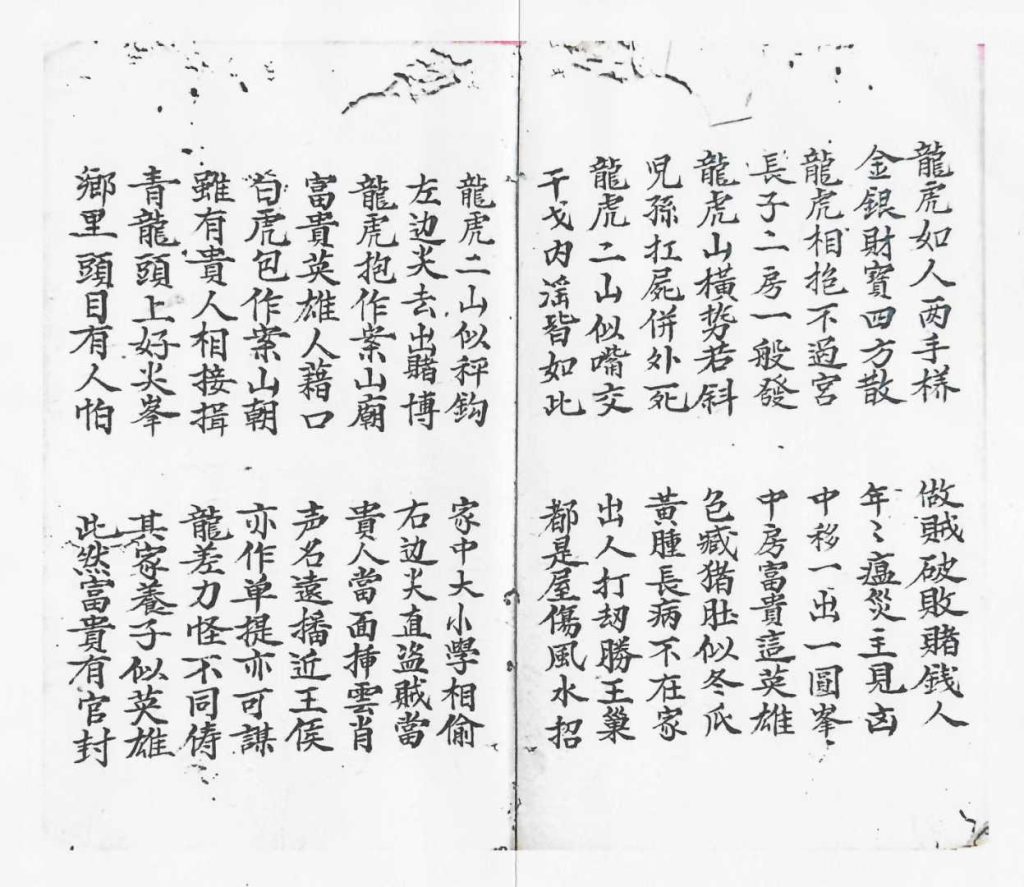 龍虎如人两手样 做賊破敗賭銭人
金銀財寶四方散 年〻瘟災主見凶
龍虎相抱不過宮 中移一出一圓峯
長子二房一般發 中房富貴這英雄
龍虎山橫势若斜 包臧猪肚似冬瓜
児孫扛屍併外死 黃腫長病不在家
龍虎二山似嘴交 出人打刼勝王巢
干戈内滛皆如此 都是屋傷風水招
龍虎二山似秤鈎 家中大小學相偷
左边尖去出賭博 右边尖直盗賊當
龍虎抱作案山廟 貴人當面揷雲肖
富貴英雄人藉口 声名遠播近王侯
白虎包作案山朝 亦作单提亦可謀
雖有貴人相接揖 龍差力怪不同俦
青龍頭上好尖峯 其家養子似英雄
鄉里頭目有人怕 此然富貴有官封